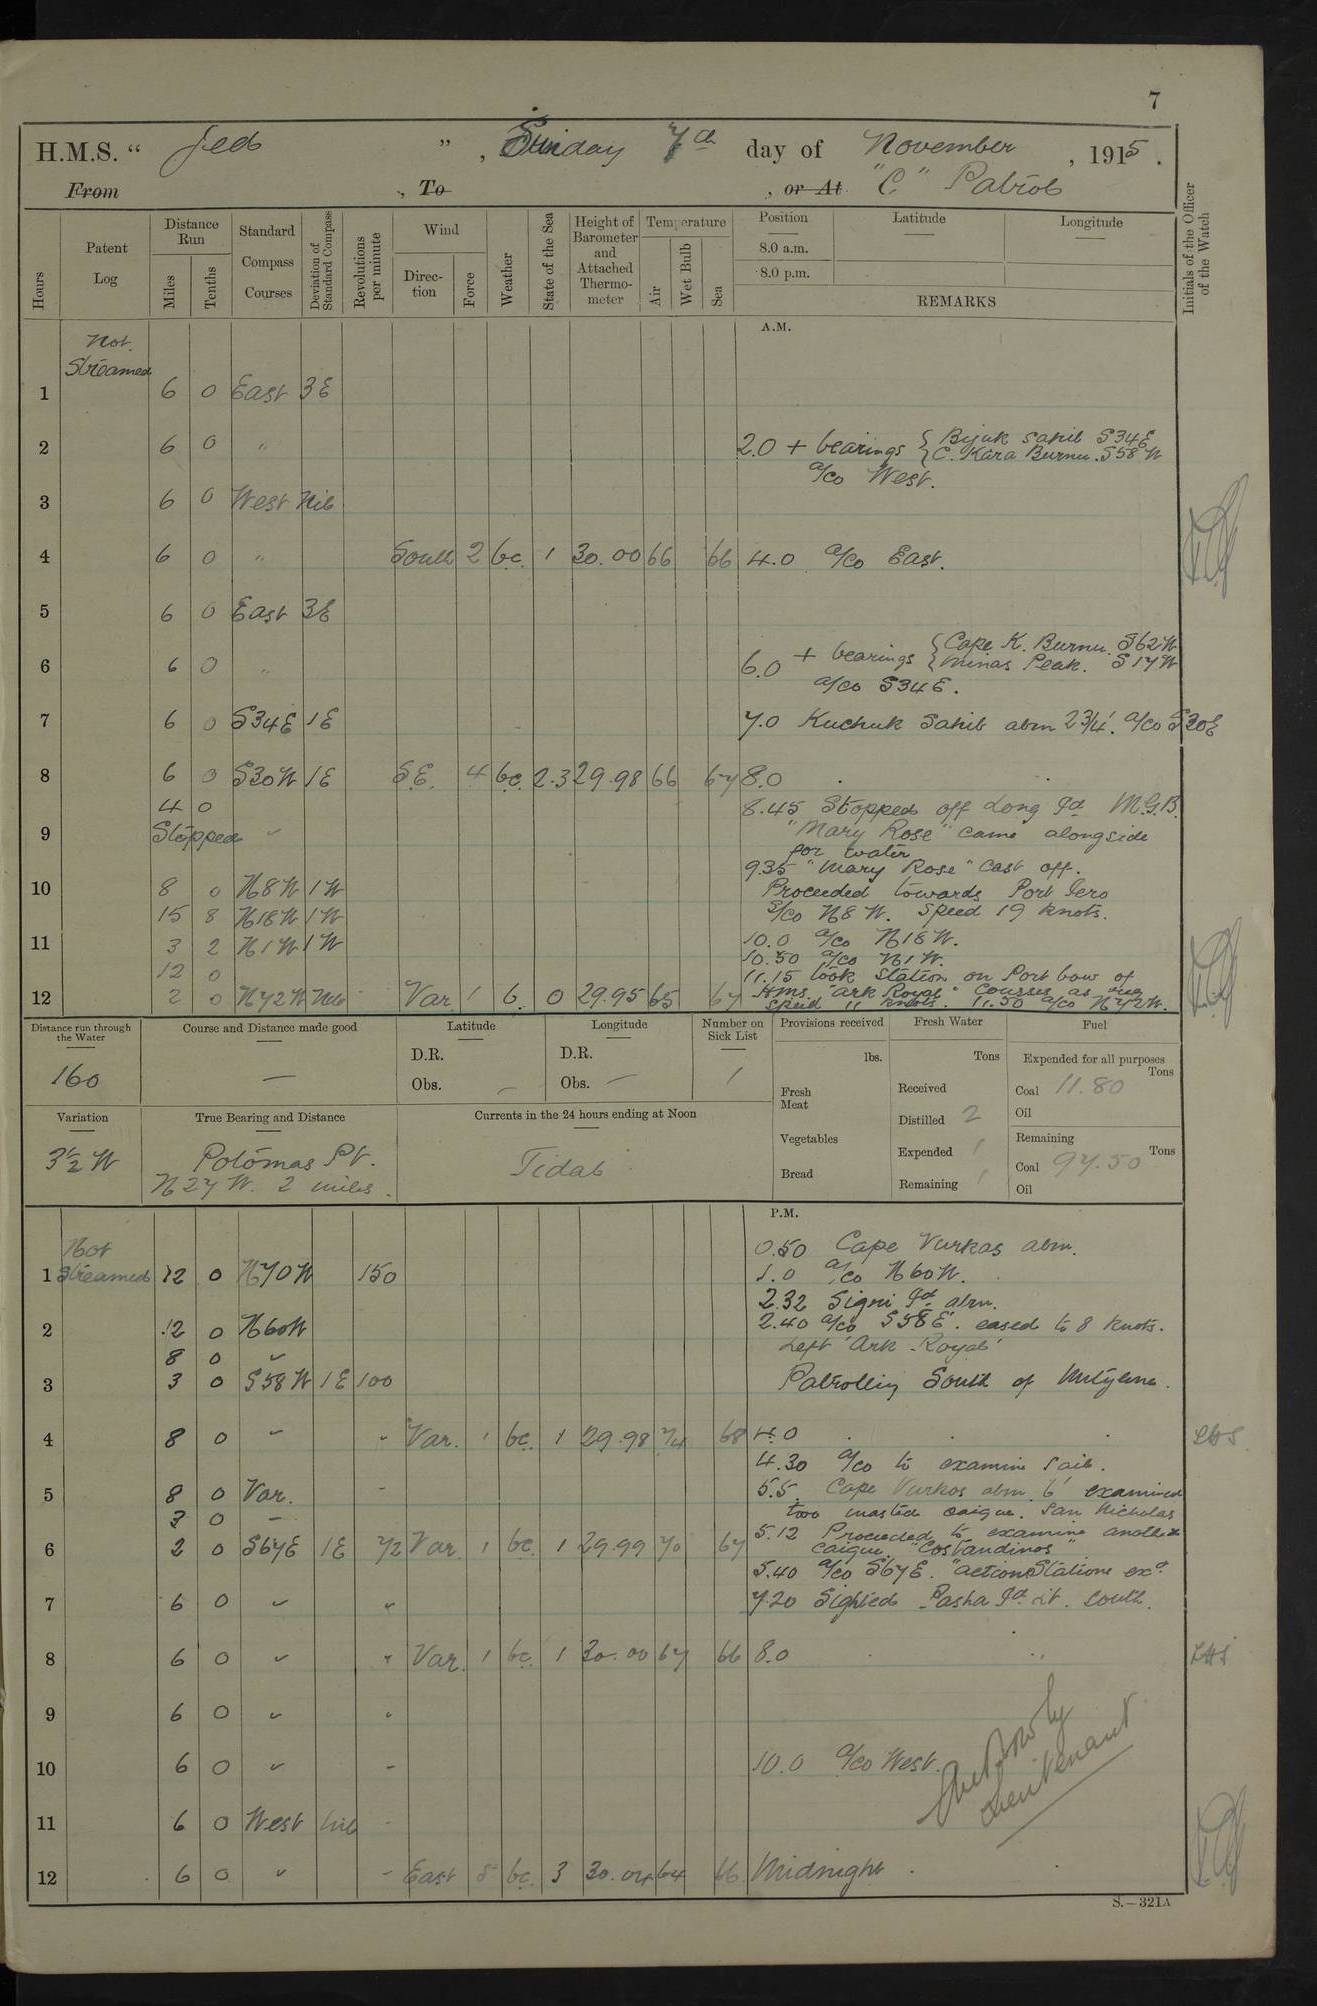 7
H.M.S. “ Jed ” , Sunday 7th day of November , 1915 .
From , To , or At. "C." Patrol
Hours
Patent Log
Distance Run
Miles
Tenths
Standard Compass Courses
Deviation of Standard Compass
Revolutions per minute
Wind
Direction
Force
Weather
State of the Sea
Height of Barometer and Attached Thermometer
Temperature
Air
Wet Bulb
Sea
Position
Latitude
Longitude
8.0 a.m.
8.0 p.m.
REMARKS
Initials of the Officer of the Watch
A.M.
Not Streamed
1 6 0 East 3E
2 6 0 " 2.0 + bearings { Bijuk Sahib S34E
{ C. Kara Burnu. S58W
a/co West.
3 6 0 West Nil
4 6 0 " South 2 bc. 1 30.00 66 66 4.0 a/co East.
5 6 0 East 3E
6 6 0 " 6.0 + bearings { Cape K. Burnu. S62W
{ Minas Peak. S17W
a/co S34E.
7 6 0 S34E 1E 7.0 Kuchuk Sahib abm 2¾'. a/co S30E
8 6 0 S30W 1E S.E. 4 bc. 2.3 29.98 66 67 8.0
4 0 8.45 Stopped off Long Id. M.G.B.
9 Stopped "Mary Rose" came alongside
for water
9.35 "Mary Rose" cast off.
10 8 0 N8W 1W Proceeded towards Port Iero
15 8 N18W 1W S/co N8W. Speed 19 knots.
11 3 2 N1W 1W 10.0 a/co N18W.
10.50 a/co N1W.
12 0 11.15 took station on Port bow of
12 2 0 N72W Nil Var. 1 b. 0 29.95 65 67 HMS "Ark Royal" Courses as req
Speed 11 knots. 11.50 a/co N72W.
Distance run through the Water
160
Course and Distance made good
—
Latitude
D.R.
Obs. —
Longitude
D.R.
Obs. —
Number on Sick List
1
Provisions received
lbs.
Fresh Meat
Vegetables
Bread
Fresh Water
Tons
Received
Distilled 2
Expended 1
Remaining 1
Fuel
Expended for all purposes
Tons
Coal 11.80
Oil
Remaining
Tons
Coal 97.50
Oil
Variation
3½ W
True Bearing and Distance
Potomas Pt.
N27W. 2 miles.
Currents in the 24 hours ending at Noon
Tidal
P.M.
Not Streamed
0.50 Cape Vurkos abm.
1 12 0 N70W 150 1.0 a/co N60W.
2.32 Sigri Id. abm.
2 12 0 N60W 2.40 a/co S58E. eased to 8 knots.
8 0 " Left 'Ark Royal'
3 3 0 S58W 1E 100 Patrolling South of Mitylene.
4 8 0 " " Var. 1 bc. 1 29.98 74 68 4.0 LHS.
4.30 a/co to examine sail.
5 8 0 Var. " 5.5. Cape Vurkos abm. 6' examined
3 0 — two masted caique. San Nicholas
5.12 Proceeded to examine another
6 2 0 S67E 1E 72 Var. 1 bc. 1 29.99 70 67 caique. "Costandinos"
5.40 a/co S67E. "action Stations exd.
7 6 0 " " 7.20 Sighted Pasha Id. Lt. South.
8 6 0 " " Var. 1 bc. 1 30.00 67 66 8.0 LHS
9 6 0 " "
10 6 0 " " 10.0 a/co West.
Lieutenant
11 6 0 West Nil "
12 6 0 " " East 5 bc. 3 30.04 64 66 Midnight
S.—321A